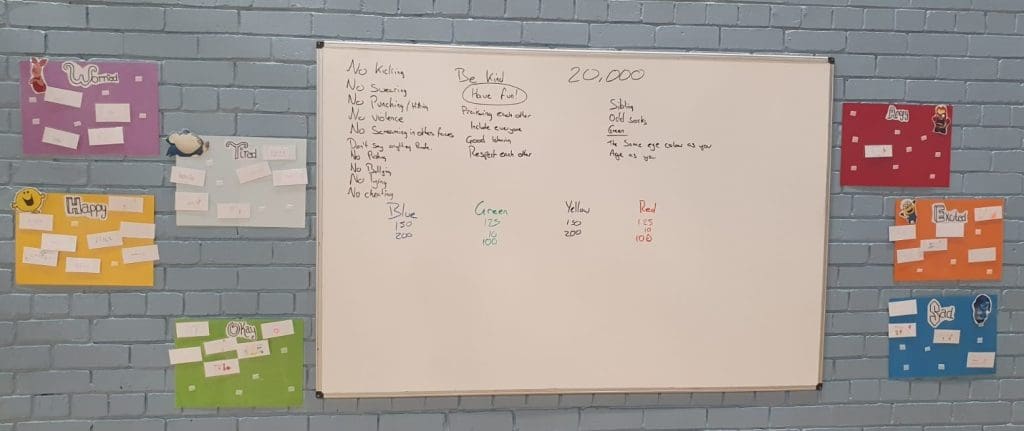 Worried
Tired
Happy
Okay
No Kicking
No Swearing
No Punching / hitting
No Violence
No Screaming in others faces
Don't say anything Rude.
No Pushing
No Bullying
No lying
No cheating
Be Kind
Have fun!
Praising each other
Include everyone
Good listening
Respect each other
20,000
Sibling
Odd socks
Green
The Same eye colour as you
Age as you
Blue
150
200
Green
125
10
100
Yellow
150
200
Red
125
10
100
Angry
Excited
Sad